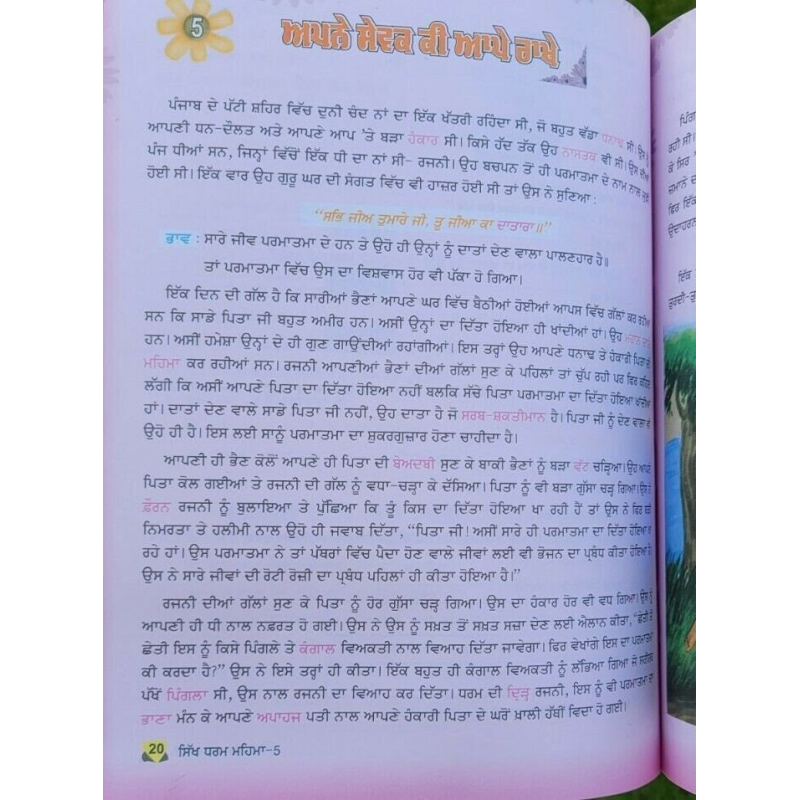 5
ਅਪਨੇ ਸੇਵਕ ਕੀ ਆਪੇ ਰਾਖੇ
ਪੰਜਾਬ ਦੇ ਪੱਟੀ ਸ਼ਹਿਰ ਵਿੱਚ ਦੁਨੀ ਚੰਦ ਨਾਂ ਦਾ ਇੱਕ ਖੱਤਰੀ ਰਹਿੰਦਾ ਸੀ, ਜੋ ਬਹੁਤ ਵੱਡਾ ਧਨਾਢ ਸੀ। ਉਸ ਨੂੰ
ਆਪਣੀ ਧਨ-ਦੌਲਤ ਅਤੇ ਆਪਣੇ ਆਪ 'ਤੇ ਬੜਾ ਹੰਕਾਰ ਸੀ। ਕਿਸੇ ਹੱਦ ਤੱਕ ਉਹ ਨਾਸਤਕ ਵੀ ਸੀ। ਉਸ ਦੀਆਂ
ਪੰਜ ਧੀਆਂ ਸਨ, ਜਿਨ੍ਹਾਂ ਵਿੱਚੋਂ ਇੱਕ ਧੀ ਦਾ ਨਾਂ ਸੀ- ਰਜਨੀ। ਉਹ ਬਚਪਨ ਤੋਂ ਹੀ ਪਰਮਾਤਮਾ ਦੇ ਨਾਮ ਨਾਲ ਜੁੜੀ
ਹੋਈ ਸੀ। ਇੱਕ ਵਾਰ ਉਹ ਗੁਰੂ ਘਰ ਦੀ ਸੰਗਤ ਵਿੱਚ ਵੀ ਹਾਜ਼ਰ ਹੋਈ ਸੀ ਤਾਂ ਉਸ ਨੇ ਸੁਣਿਆ :
“ਸਭਿ ਜੀਅ ਤੁਮਾਰੇ ਜੀ, ਤੂ ਜੀਆ ਕਾ ਦਾਤਾਰਾ॥”
ਭਾਵ : ਸਾਰੇ ਜੀਵ ਪਰਮਾਤਮਾ ਦੇ ਹਨ ਤੇ ਉਹੋ ਹੀ ਉਨ੍ਹਾਂ ਨੂੰ ਦਾਤਾਂ ਦੇਣ ਵਾਲਾ ਪਾਲਣਹਾਰ ਹੈ॥
ਤਾਂ ਪਰਮਾਤਮਾ ਵਿੱਚ ਉਸ ਦਾ ਵਿਸ਼ਵਾਸ ਹੋਰ ਵੀ ਪੱਕਾ ਹੋ ਗਿਆ।
ਇੱਕ ਦਿਨ ਦੀ ਗੱਲ ਹੈ ਕਿ ਸਾਰੀਆਂ ਭੈਣਾਂ ਆਪਣੇ ਘਰ ਵਿੱਚ ਬੈਠੀਆਂ ਹੋਈਆਂ ਆਪਸ ਵਿੱਚ ਗੱਲਾਂ ਕਰ ਰਹੀਆਂ
ਸਨ ਕਿ ਸਾਡੇ ਪਿਤਾ ਜੀ ਬਹੁਤ ਅਮੀਰ ਹਨ। ਅਸੀਂ ਉਨ੍ਹਾਂ ਦਾ ਦਿੱਤਾ ਹੋਇਆ ਹੀ ਖਾਂਦੀਆਂ ਹਾਂ। ਉਹ
ਹਨ। ਅਸੀਂ ਹਮੇਸ਼ਾ ਉਨ੍ਹਾਂ ਦੇ ਹੀ ਗੁਣ ਗਾਉਂਦੀਆਂ ਰਹਾਂਗੀਆਂ। ਇਸ ਤਰ੍ਹਾਂ ਉਹ ਆਪਣੇ ਧਨਾਢ ਤੇ ਹੰਕਾਰੀ ਪਿਤਾ ਦੀ
ਮਹਿਮਾ ਕਰ ਰਹੀਆਂ ਸਨ। ਰਜਨੀ ਆਪਣੀਆਂ ਭੈਣਾਂ ਦੀਆਂ ਗੱਲਾਂ ਸੁਣ ਕੇ ਪਹਿਲਾਂ ਤਾਂ ਚੁੱਪ ਰਹੀ ਪਰ ਫਿਰ ਕਹਿਣ
ਲੱਗੀ ਕਿ ਅਸੀਂ ਆਪਣੇ ਪਿਤਾ ਦਾ ਦਿੱਤਾ ਹੋਇਆ ਨਹੀਂ ਬਲਕਿ ਸੱਚੇ ਪਿਤਾ ਪਰਮਾਤਮਾ ਦਾ ਦਿੱਤਾ ਹੋਇਆ ਖਾਂਦੀਆਂ
ਹਾਂ। ਦਾਤਾਂ ਦੇਣ ਵਾਲੇ ਸਾਡੇ ਪਿਤਾ ਜੀ ਨਹੀਂ, ਉਹ ਦਾਤਾ ਹੈ ਜੋ ਸਰਬ-ਸ਼ਕਤੀਮਾਨ ਹੈ। ਪਿਤਾ ਜੀ ਨੂੰ ਦੇਣ ਵਾਲਾ ਵੀ
ਉਹੋ ਹੀ ਹੈ। ਇਸ ਲਈ ਸਾਨੂੰ ਪਰਮਾਤਮਾ ਦਾ ਸ਼ੁਕਰਗੁਜ਼ਾਰ ਹੋਣਾ ਚਾਹੀਦਾ ਹੈ।
ਆਪਣੀ ਹੀ ਭੈਣ ਕੋਲੋਂ ਆਪਣੇ ਹੀ ਪਿਤਾ ਦੀ ਬੇਅਦਬੀ ਸੁਣ ਕੇ ਬਾਕੀ ਭੈਣਾਂ ਨੂੰ ਬੜਾ ਵੱਟ ਚੜ੍ਹਿਆ। ਉਹ ਆਪਣੇ
ਪਿਤਾ ਕੋਲ ਗਈਆਂ ਤੇ ਰਜਨੀ ਦੀ ਗੱਲ ਨੂੰ ਵਧਾ-ਚੜ੍ਹਾ ਕੇ ਦੱਸਿਆ। ਪਿਤਾ ਨੂੰ ਵੀ ਬੜਾ ਗੁੱਸਾ ਚੜ੍ਹ ਗਿਆ। ਉਸ ਨੇ
ਫ਼ੌਰਨ ਰਜਨੀ ਨੂੰ ਬੁਲਾਇਆ ਤੇ ਪੁੱਛਿਆ ਕਿ ਤੂੰ ਕਿਸ ਦਾ ਦਿੱਤਾ ਹੋਇਆ ਖਾ ਰਹੀ ਹੈਂ ਤਾਂ ਉਸ ਨੇ ਫਿਰ ਬੜੀ
ਨਿਮਰਤਾ ਤੇ ਹਲੀਮੀ ਨਾਲ ਉਹੋ ਹੀ ਜਵਾਬ ਦਿੱਤਾ, “ਪਿਤਾ ਜੀ! ਅਸੀਂ ਸਾਰੇ ਹੀ ਪਰਮਾਤਮਾ ਦਾ ਦਿੱਤਾ ਹੋਇਆ ਖਾ
ਰਹੇ ਹਾਂ। ਉਸ ਪਰਮਾਤਮਾ ਨੇ ਤਾਂ ਪੱਥਰਾਂ ਵਿੱਚ ਪੈਦਾ ਹੋਣ ਵਾਲੇ ਜੀਵਾਂ ਲਈ ਵੀ ਭੋਜਨ ਦਾ ਪ੍ਰਬੰਧ ਕੀਤਾ ਹੋਇਆ ਹੈ।
ਉਸ ਨੇ ਸਾਰੇ ਜੀਵਾਂ ਦੀ ਰੋਟੀ ਰੋਜ਼ੀ ਦਾ ਪ੍ਰਬੰਧ ਪਹਿਲਾਂ ਹੀ ਕੀਤਾ ਹੋਇਆ ਹੈ।”
ਰਜਨੀ ਦੀਆਂ ਗੱਲਾਂ ਸੁਣ ਕੇ ਪਿਤਾ ਨੂੰ ਹੋਰ ਗੁੱਸਾ ਚੜ੍ਹ ਗਿਆ। ਉਸ ਦਾ ਹੰਕਾਰ ਹੋਰ ਵੀ ਵਧ ਗਿਆ। ਉਸ ਨੂੰ
ਆਪਣੀ ਹੀ ਧੀ ਨਾਲ ਨਫ਼ਰਤ ਹੋ ਗਈ। ਉਸ ਨੇ ਉਸ ਨੂੰ ਸਖ਼ਤ ਤੋਂ ਸਖ਼ਤ ਸਜ਼ਾ ਦੇਣ ਲਈ ਐਲਾਨ ਕੀਤਾ, “ਛੇਤੀ ਤੋਂ
ਛੇਤੀ ਇਸ ਨੂੰ ਕਿਸੇ ਪਿੰਗਲੇ ਤੇ ਕੰਗਾਲ ਵਿਅਕਤੀ ਨਾਲ ਵਿਆਹ ਦਿੱਤਾ ਜਾਵੇਗਾ। ਫਿਰ ਵੇਖਾਂਗੇ ਇਸ ਦਾ ਪਰਮਾਤਮਾ
ਕੀ ਕਰਦਾ ਹੈ?” ਉਸ ਨੇ ਇਸੇ ਤਰ੍ਹਾਂ ਹੀ ਕੀਤਾ। ਇੱਕ ਬਹੁਤ ਹੀ ਕੰਗਾਲ ਵਿਅਕਤੀ ਨੂੰ ਲੱਭਿਆ ਗਿਆ ਜੋ ਸਰੀਰਕ
ਪੱਖੋਂ ਪਿੰਗਲਾ ਸੀ, ਉਸ ਨਾਲ ਰਜਨੀ ਦਾ ਵਿਆਹ ਕਰ ਦਿੱਤਾ। ਧਰਮ ਦੀ ਦ੍ਰਿੜ੍ਹ ਰਜਨੀ, ਇਸ ਨੂੰ ਵੀ ਪਰਮਾਤਮਾ ਦਾ
ਭਾਣਾ ਮੰਨ ਕੇ ਆਪਣੇ ਅਪਾਹਜ ਪਤੀ ਨਾਲ ਆਪਣੇ ਹੰਕਾਰੀ ਪਿਤਾ ਦੇ ਘਰੋਂ ਖ਼ਾਲੀ ਹੱਥੀਂ ਵਿਦਾ ਹੋ ਗਈ।
20 ਸਿੱਖ ਧਰਮ ਮਹਿਮਾ-5
ਰਹੀ ਸੀ।
ਕੇ ਸਿਰ
ਜ਼ਮਾਨੇ ਦ
ਫਿਰ ਇੱਕ
ਉਦਾਹਰਨ
ਇੱਕ